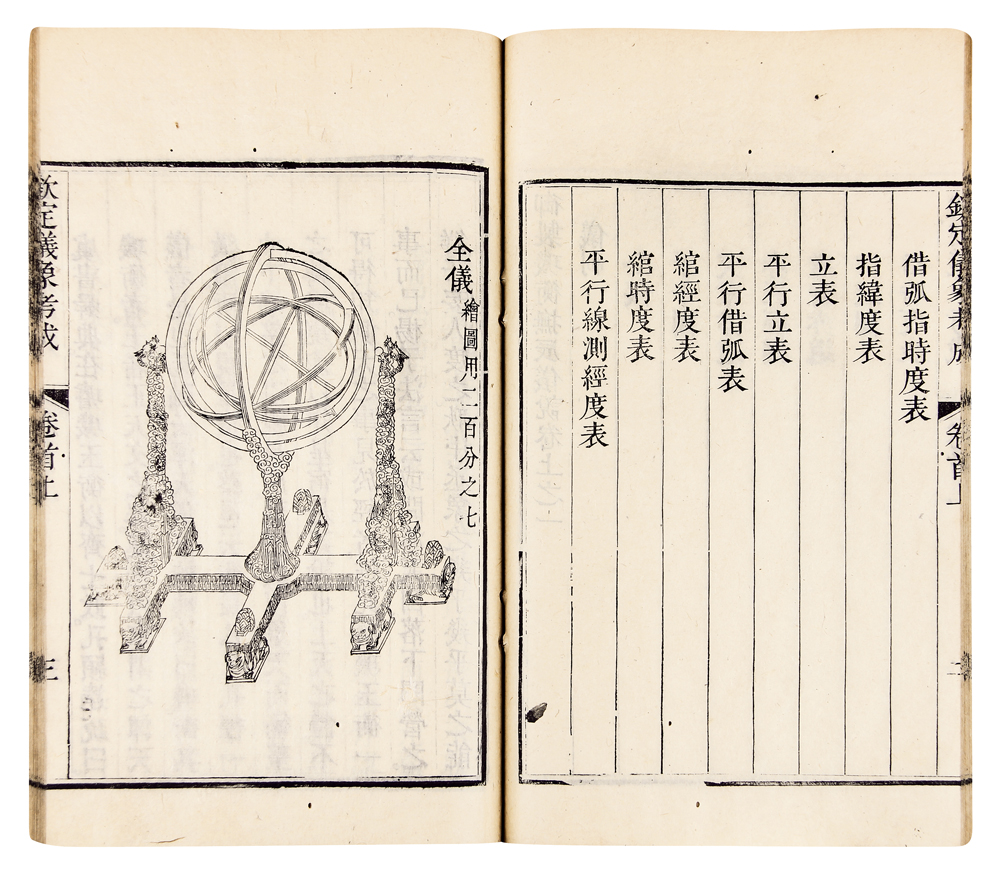 欽定儀象考成 卷首上
借弧指時度表
指緯度表
立表
平行立表
平行借弧表
綰經度表
綰時度表
平行線測經度表
全儀 繪圖用二百分之七
欽定儀象考成 卷首上 三